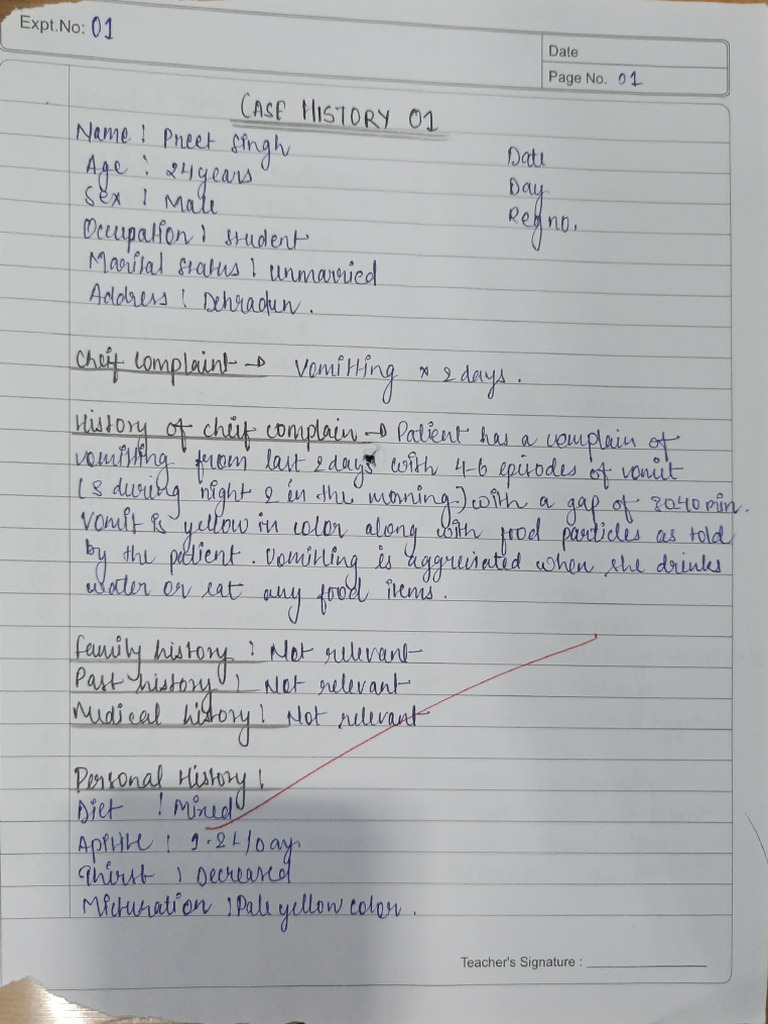 Expt.No: 01
Date
Page No. 01
CASE HISTORY 01
Name : Preet Singh
Date
Age : 24 years
Day
Sex : Male
Reg no.
Occupation : student
Marital status : unmarried
Address : Dehradun.
Cheif complaint → Vomitting × 2 days.
History of cheif complain → Patient has a complain of
vomitting from last 2 days with 4-6 episodes of vomit
(3 during night 2 in the morning) with a gap of 3040 min.
Vomit is yellow in color along with food particles as told
by the patient. Vomitting is aggreviated when she drinks
water or eat any food items.
Family history : Not relevant
Past history : Not relevant
Medical history : Not relevant
Personal History :
Diet : Mixed
: 1-2L/Day
Thirst : Decreased
Micturation : Pale yellow color.
Teacher's Signature :